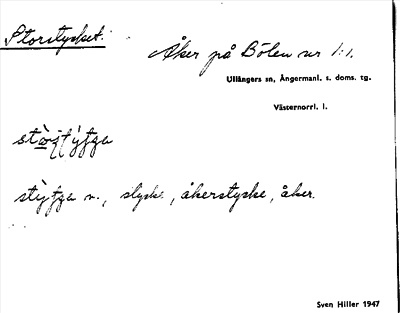 Storstycket.
Åker på Bölen nr 1:1.
Ullångers sn, Ångermanl. s. doms. tg.
Västernorrl. l.
n., stycke, åkerstycke, åker.
Sven Hiller 1947